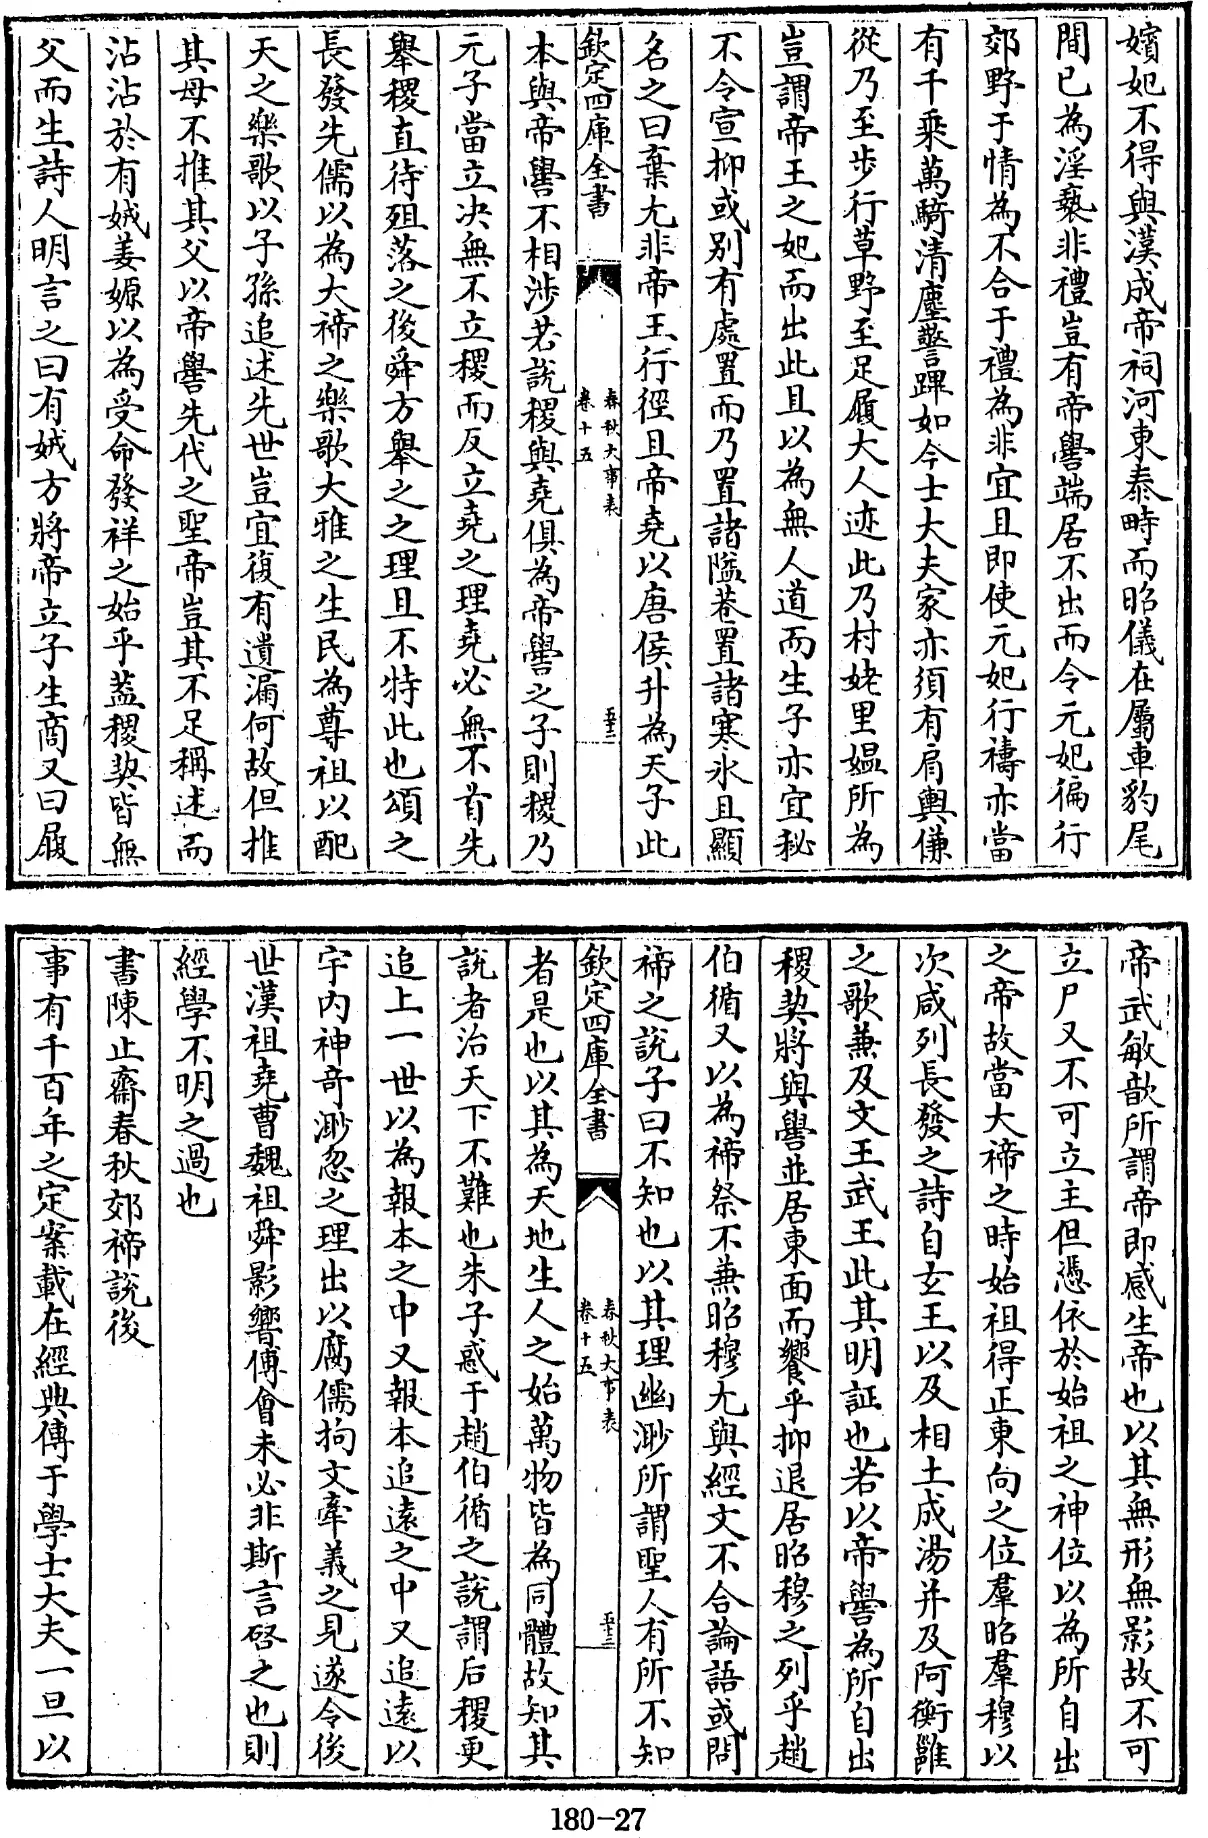 嬪妃不得與漢成帝祠河東泰畤而昭儀在屬車豹尾
間已為淫褻非禮豈有帝嚳端居不出而令元妃徧行
郊野于情為不合于禮為非宜且即使元妃行禱亦當
有千乘萬騎清塵警蹕如今士大夫家亦須有肩輿傔
從乃至步行草野至足履大人迹此乃村姥里媪所為
豈謂帝王之妃而出此且以為無人道而生子亦宜秘
不令宣抑或别有處置而乃置諸隘巷置諸寒氷且顯
名之曰棄尤非帝王行徑且帝堯以唐侯升為天子此
欽定四庫全書
春秋大事表
卷十五
本與帝嚳不相涉若説稷與堯俱為帝嚳之子則稷乃
元子當立决無不立稷而反立堯之理堯必無不首先
舉稷直待殂落之後舜方舉之之理且不特此也頌之
長發先儒以為大禘之樂歌大雅之生民為尊祖以配
天之樂歌以子孫追述先世豈宜復有遺漏何故但推
其母不推其父以帝嚳先代之聖帝豈其不足稱述而
沾沾於有娀姜嫄以為受命發祥之始乎葢稷契皆無
父而生詩人明言之曰有娀方將帝立子生商又曰履
帝武敏歆所謂帝即感生帝也以其無形無影故不可
立尸又不可立主但憑依於始祖之神位以為所自出
之帝故當大禘之時始祖得正東向之位羣昭羣穆以
次咸列長發之詩自玄王以及相土成湯并及阿衡雝
之歌兼及文王武王此其明証也若以帝嚳為所自出
稷契將與嚳並居東面而饗乎抑退居昭穆之列乎趙
伯循又以為禘祭不兼昭穆尤與經文不合論語或問
禘之説子曰不知也以其理幽渺所謂聖人有所不知
欽定四庫全書
春秋大事表
卷十五
五十三
者是也以其為天地生人之始萬物皆為同體故知其
説者治天下不難也朱子惑于趙伯循之説謂后稷更
追上一世以為報本之中又報本追遠之中又追遠以
宇内神奇渺忽之理出以腐儒拘文牽義之見遂令後
世漢祖堯曹魏祖舜影響傅會未必非斯言啓之也則
經學不明之過也
書陳止齋春秋郊禘説後
事有千百年之定案載在經典傳于學士大夫一旦以
180-27